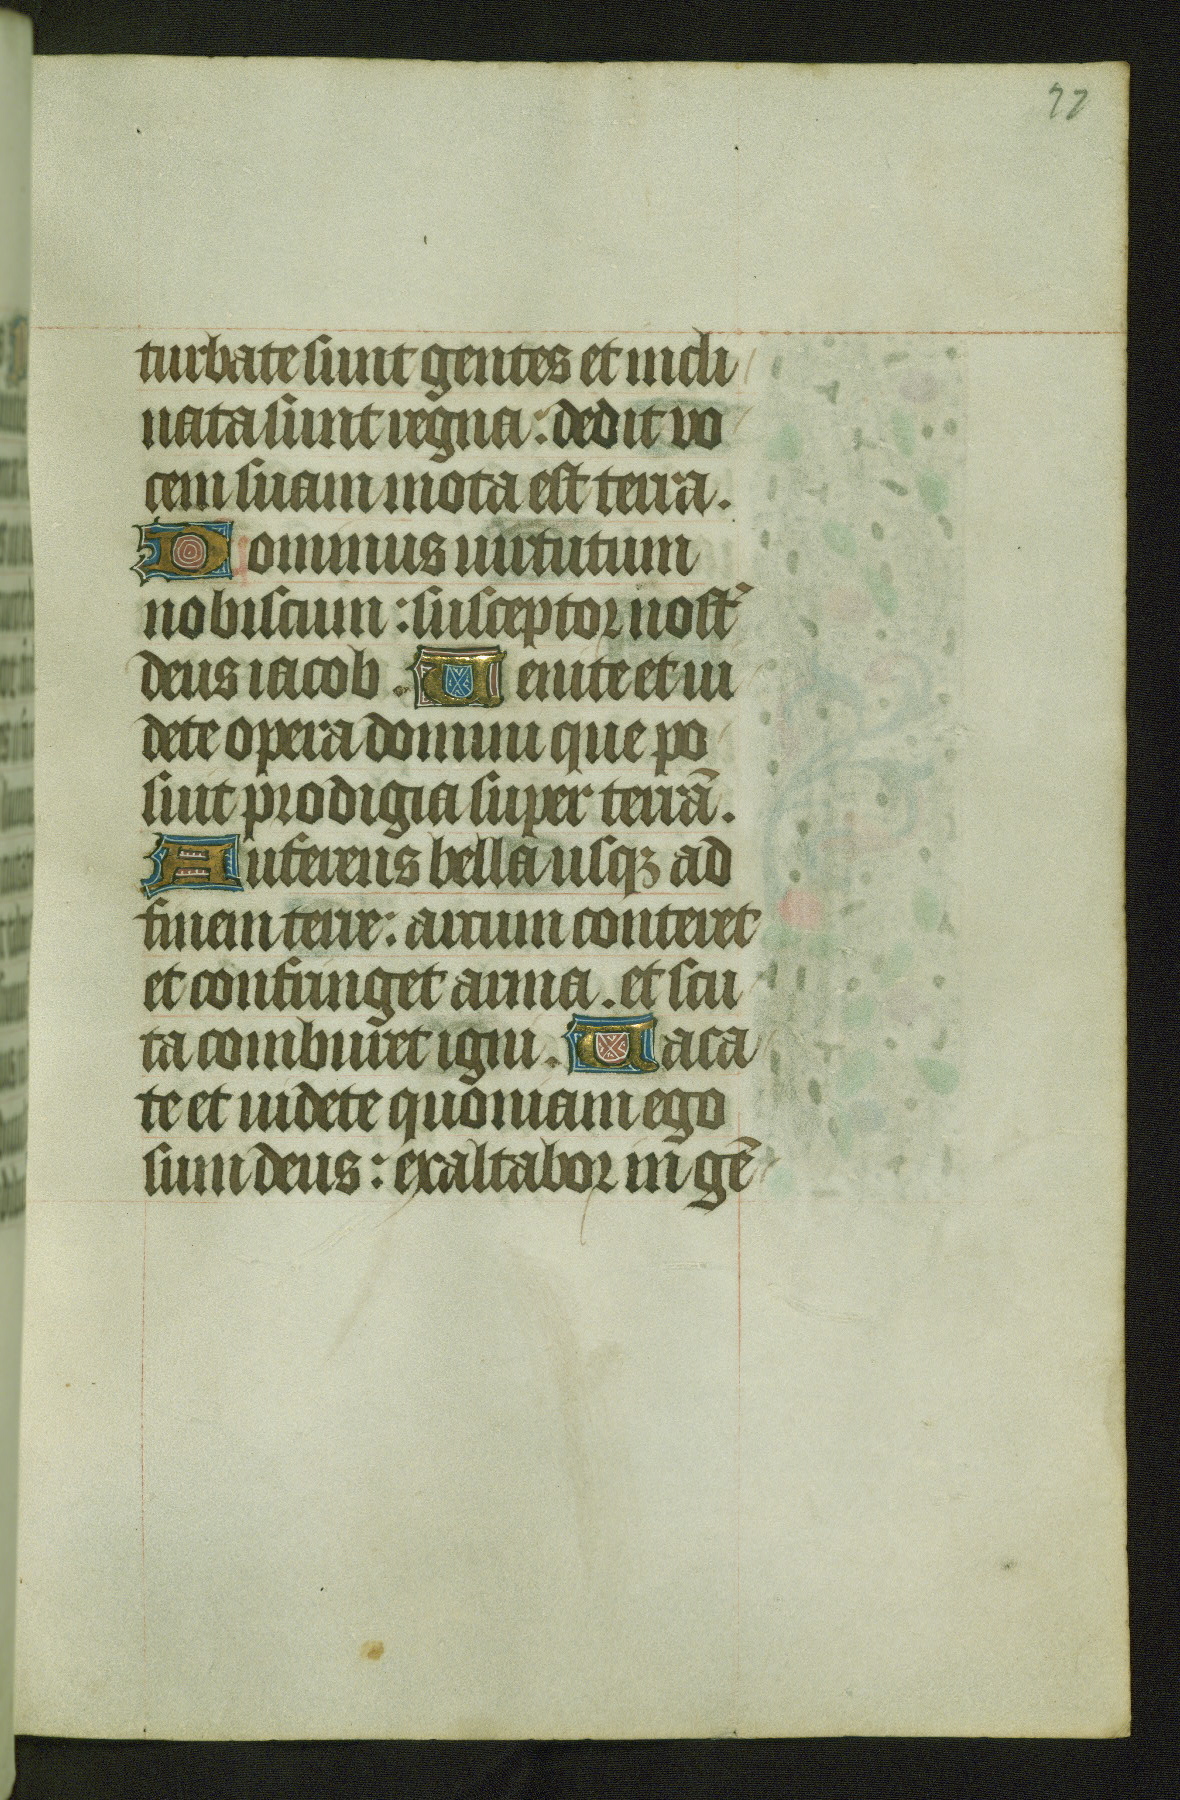 77
turbate sunt gentes et incli
nata sunt regna : dedit vo
cem suam mota est terra .
Dominus uirtutum
nobiscum : susceptor nost᷒
deus iacob . Uenite et ui
dete opera domini que po
suit prodigia super terrā .
Auferens bella usqꝫ ad
finem terre : arcum conteret
et confringet arma . et scu
ta comburet igni . Uaca
te et uidete quoniam ego
sum deus : exaltabor in gē